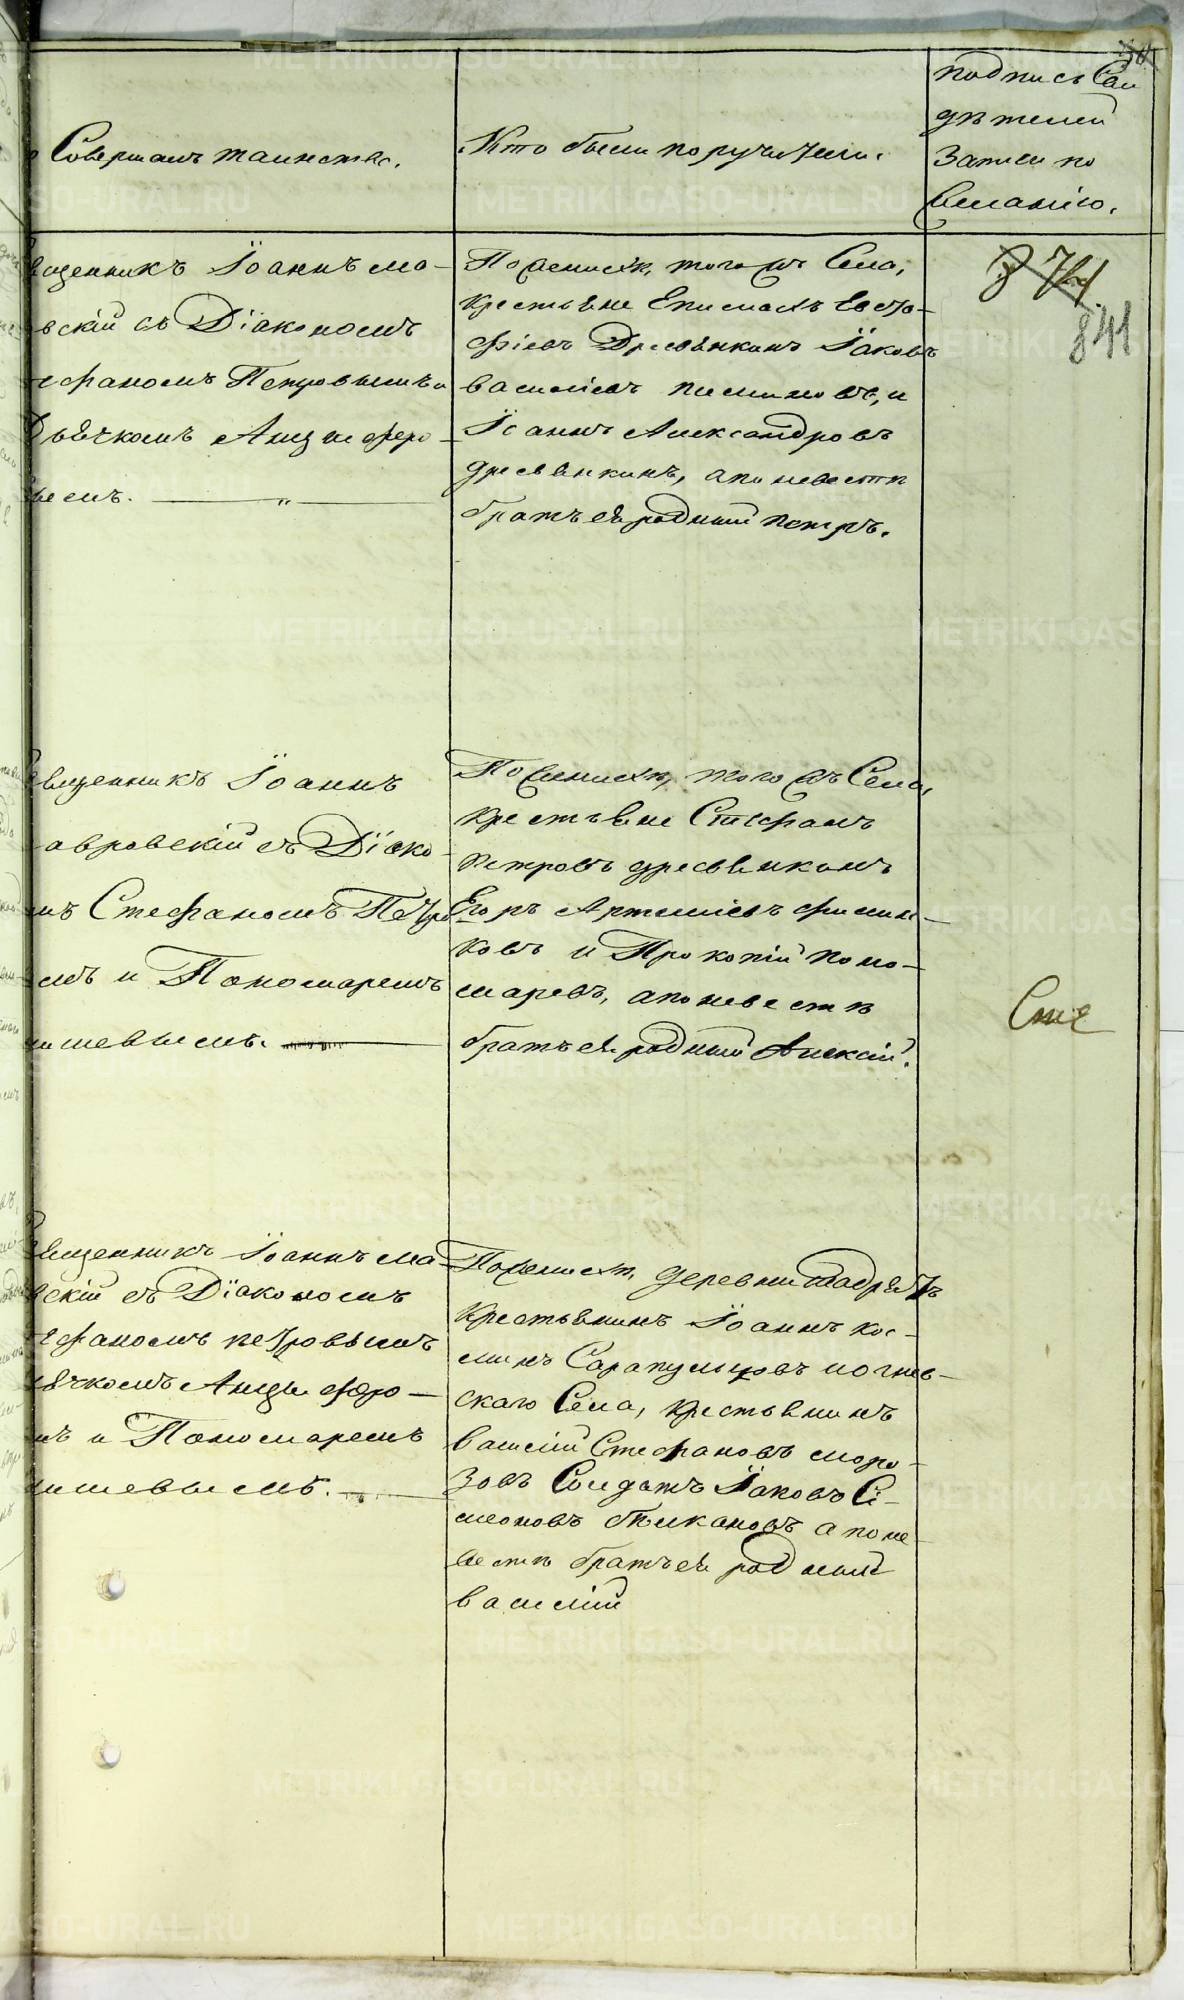 подпись Сви
дѣтелей
Записи по
желанію.
Совершалъ таинство.
Кто были поручители.
вященникъ Іоаннъ Ма-
вскій съ Діакономъ
ефаномъ Петровымъ и
Дьячкомъ Анциферо-
вымъ. „
По женихѣ, того жъ Села,
крестьяне Епимахъ Евдо-
Дресвянкинъ Іаковъ
василіевъ и
Іоаннъ Александровъ
дресвянкинъ, а по невестѣ
братъ ея родный петръ.
841
вященникъ Іоаннъ
авровскій съ Діако-
мъ Стефаномъ Петро
мъ и Пономаремъ
ишевымъ.
По женихѣ, того жъ Села,
крестьяне Стефанъ
петровъ дресвянкинъ
Егоръ Артеміевъ филин-
ковъ и Прокопій поно-
маревъ, а по невестѣ
братъ ея родный Алексій.
вященникъ Іоаннъ Ма
вскій съ Діакономъ
ефаномъ петровымъ
ячкомъ Анциферо-
мъ и Пономаремъ
ишевымъ.
По женихѣ, деревни
крестьянинъ Іоаннъ кос-
минъ Сарапульцовъ и огнев-
скаго Села, крестьянинъ
василій Стефановъ моро-
зовъ Солдатъ Іаковъ Сі-
меоновъ бѣлкановъ а по не-
вестѣ братъ ея родный
василій
METRIKI.GASO-URAL.RU